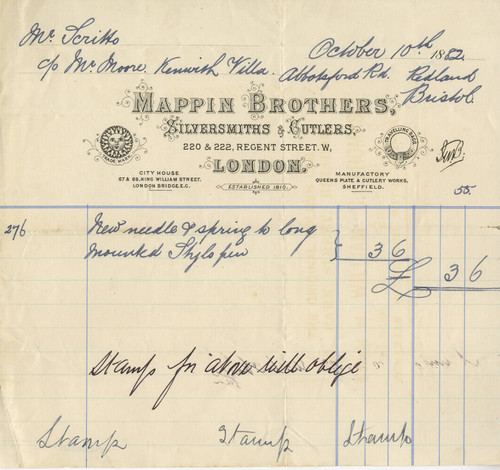 Mr. Scritto October 10th 1882.
c/o Mr Moore. Kenwith Villa. Abbotsford Rd. Redland
Bristol.
MAPPIN BROTHERS,
SILVERSMITHS & CUTLERS.
220 & 222, REGENT STREET. W,
LONDON.
TRADE MARK
TRAVELLING BAGS
CITY HOUSE
67 & 68, KING WILLIAM STREET.
LONDON BRIDGE, E.C.
ESTABLISHED 1810.
MANUFACTORY
QUEENS PLATE & CUTLERY WORKS,
SHEFFIELD.
55.
276 New needle & spring to long
mounted Stylo pen 3 6
£ 3 6
Stamps for above will oblige
Stamp Stamp Stamp